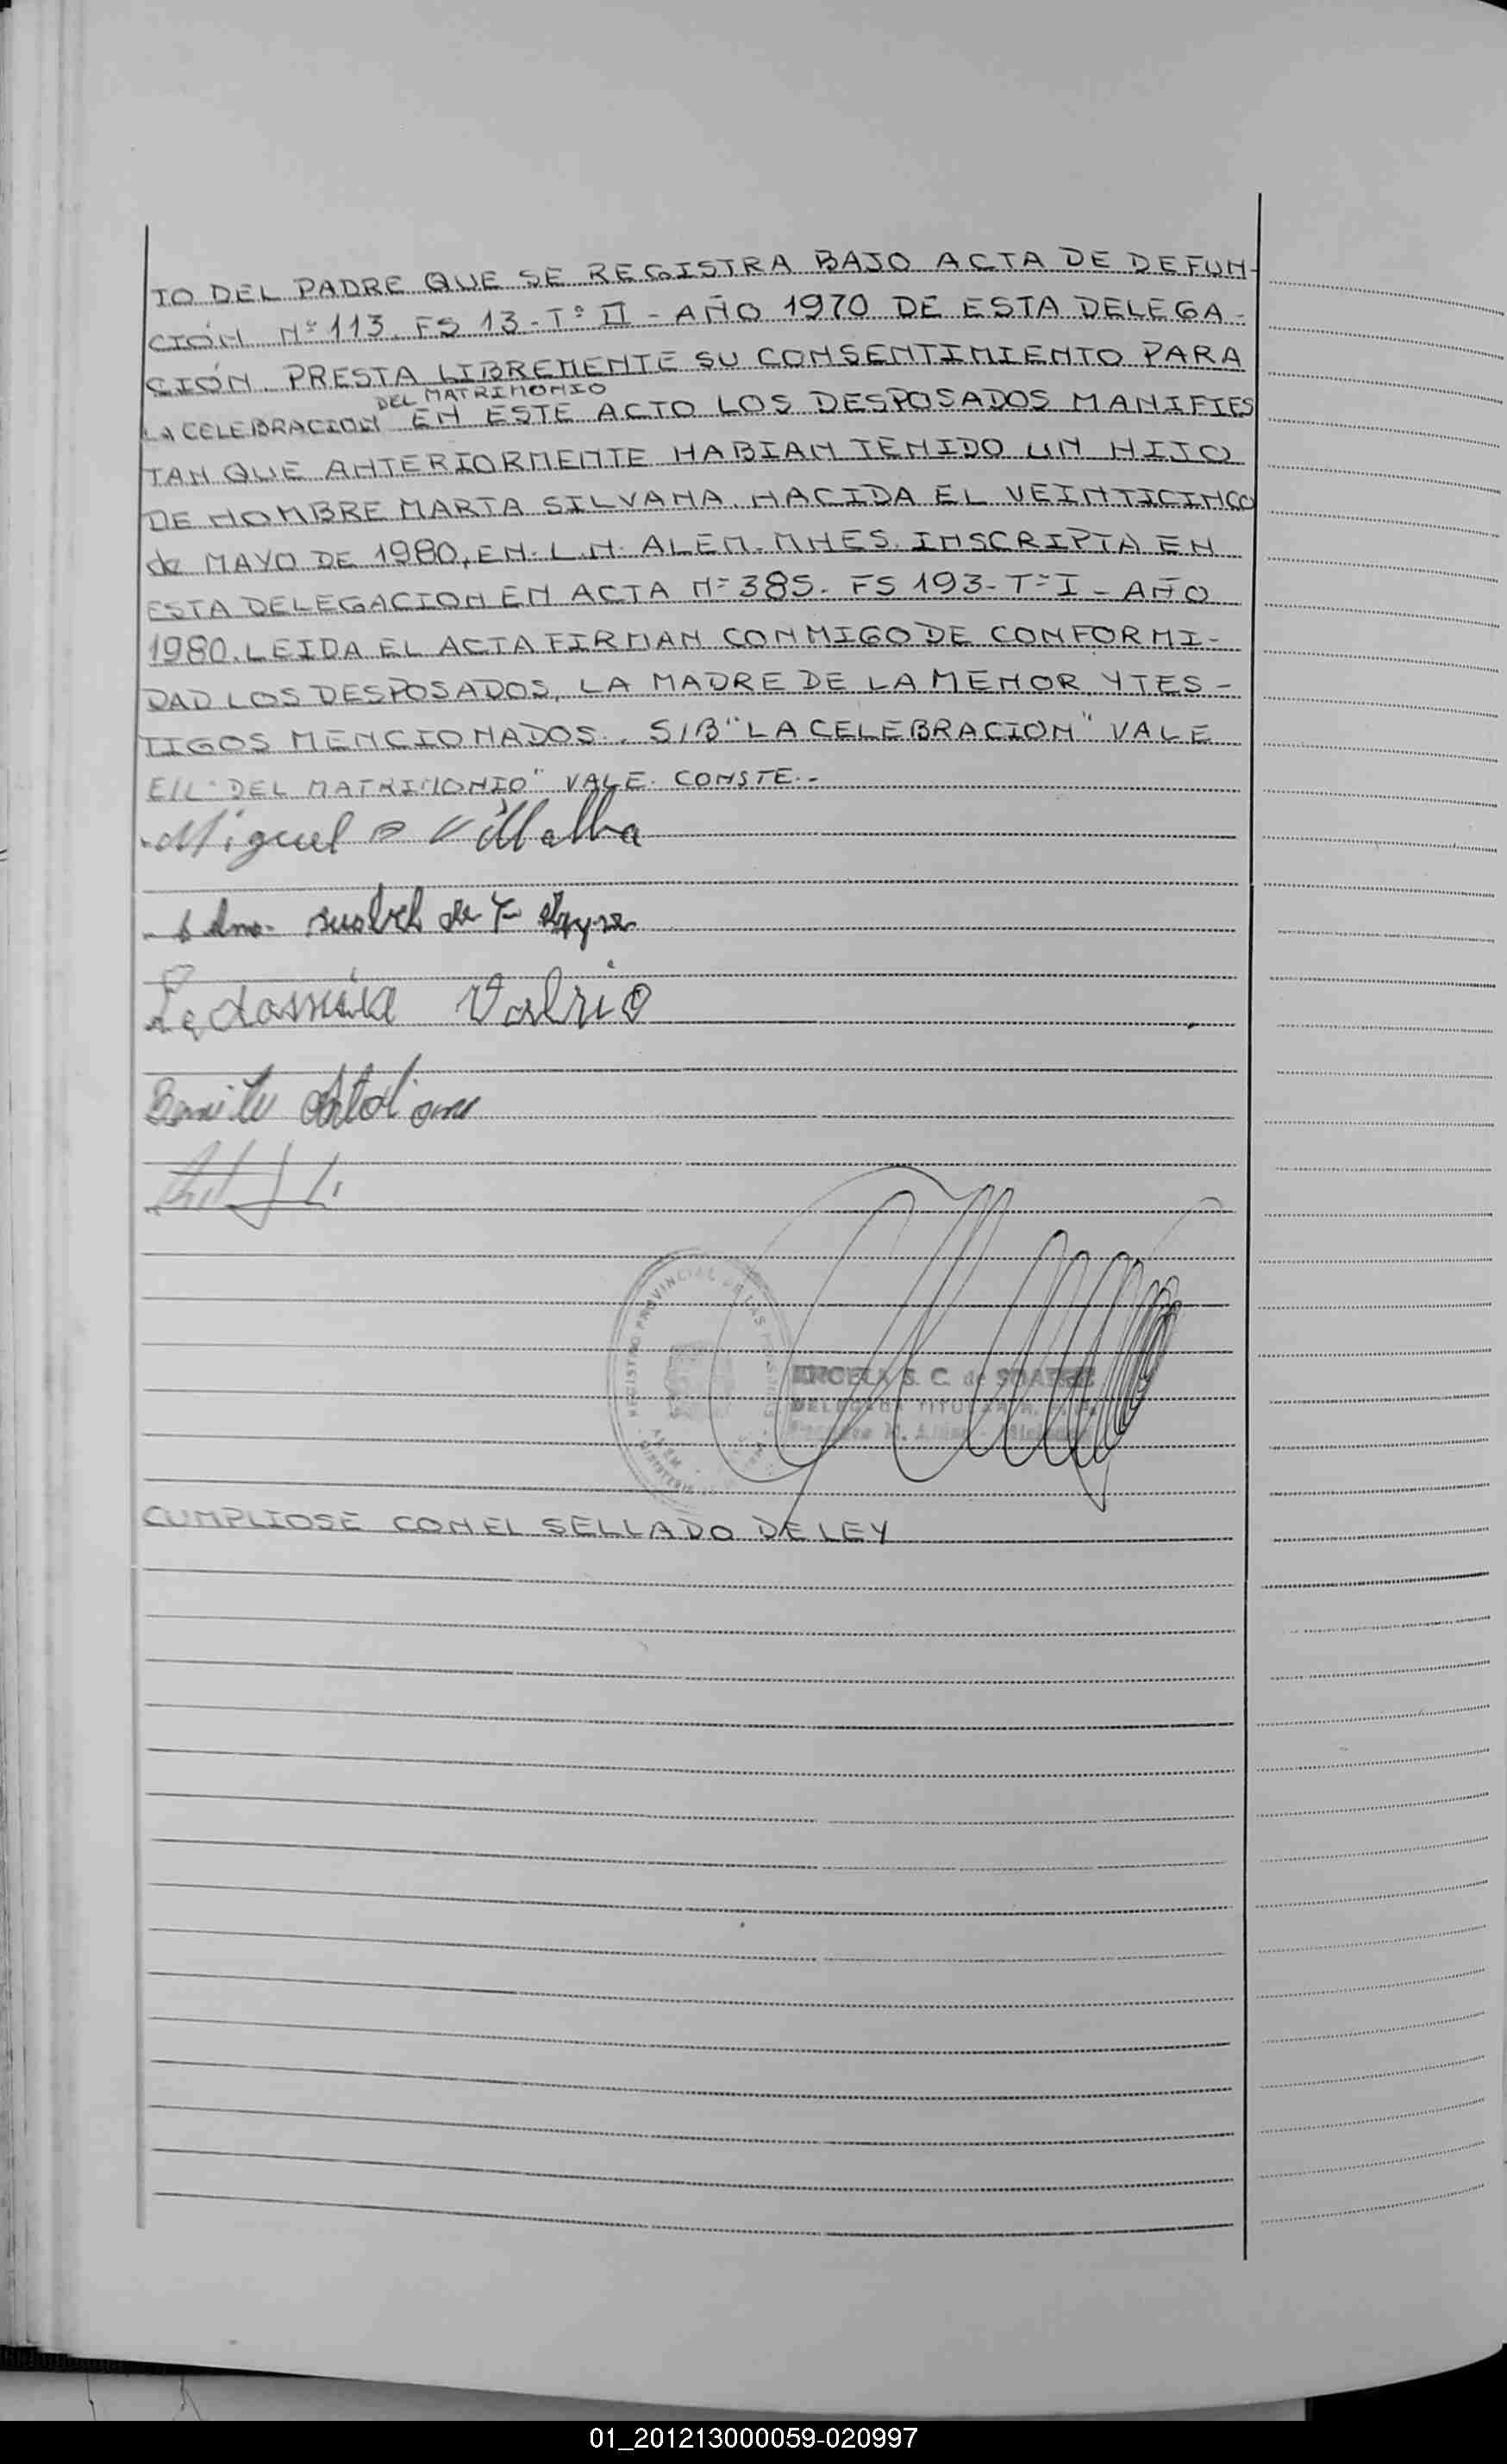 TO DEL PADRE QUE SE REGISTRA BAJO ACTA DE DEFUN-
CIÓN Nº 113. FS 13 - Tº II - AÑO 1970 DE ESTA DELEGA-
CIÓN. PRESTA LIBREMENTE SU CONSENTIMIENTO PARA
DEL MATRIMONIO
LA CELEBRACION EN ESTE ACTO LOS DESPOSADOS MANIFIES
TAN QUE ANTERIORMENTE HABIAN TENIDO UN HIJO
DE NOMBRE MARTA SILVANA. NACIDA EL VEINTICINCO
de MAYO DE 1980, EN. L.N. ALEM. MNES. INSCRIPTA EN
ESTA DELEGACION EN ACTA Nº 385. FS 193 - Tº I - AÑO
1980. LEIDA EL ACTA FIRMAN CONMIGO DE CONFORMI-
DAD LOS DESPOSADOS, LA MADRE DE LA MENOR, Y TES-
TIGOS MENCIONADOS. . S/B "LA CELEBRACION" VALE
E/L "DEL MATRIMONIO" VALE. CONSTE.-
Miguel Villalba
Valrio
REGISTRO PROVINCIAL DE LAS
ANGELA S. C. de SUAREZ
DELEGADA TITULAR
CUMPLIOSE CON EL SELLADO DE LEY
01_201213000059-020997